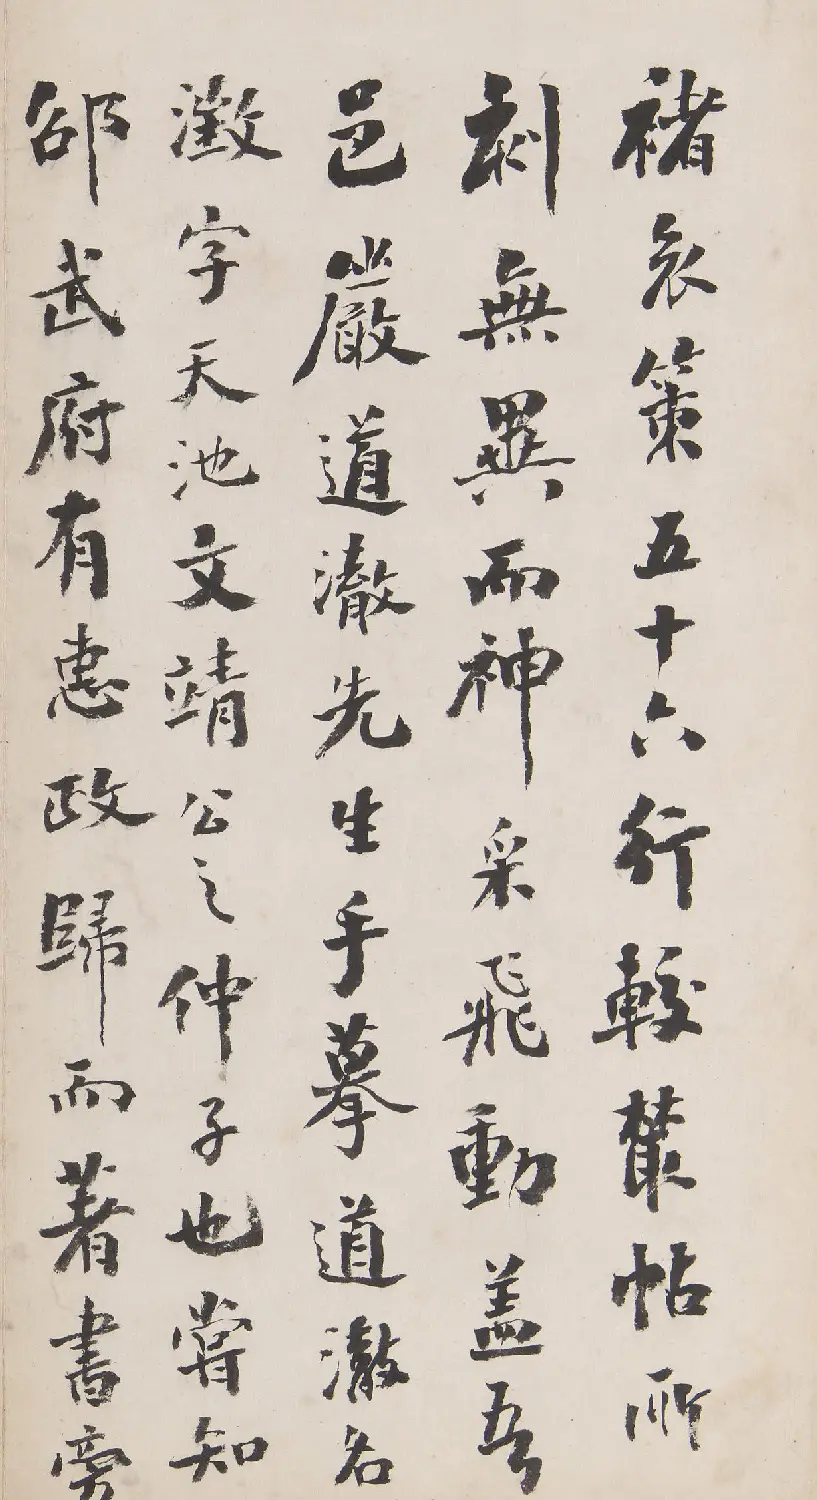 褚哀策五十六行較叢帖所
刻無異而神采飛動蓋吾
邑嚴道澈先生手摹道澈名
澂字天池文靖公之仲子也嘗知
邵武府有惠政歸而著書旁